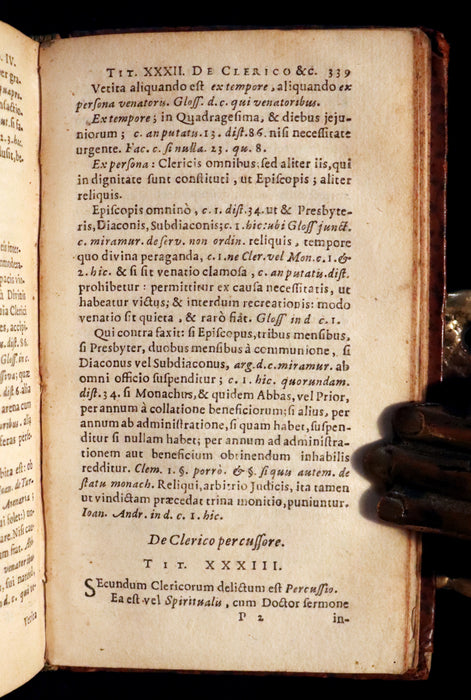 TIT. XXXII. DE CLERICO &c. 339
Vetita aliquando est ex tempore, aliquando ex
persona venatorū. Gloss. d. c. qui venatoribus.
Ex tempore; in Quadragesima, & diebus jeju-
niorum; c. an putatu. 13. dist. 86. nisi necessitate
urgente. Fac. c. si nulla. 23. qu. 8.
Ex persona: Clericis omnibus: sed aliter iis, qui
in dignitate sunt constituti, ut Episcopis; aliter
reliquis.
Episcopis omninò, c. 1. dist. 34. ut & Presbyte-
ris, Diaconis, Subdiaconis; c. 1. hic: ubi Gloss junct.
c. miramur. de serv. non ordin. reliquis, tempore
quo divina peraganda, c. 1. ne Cler. vel Mon. c. 1. &
2. hic. & si sit venatio clamosa, c. an putatu. dist.
prohibetur: permittitur ex causa necessitatis, ut
habeatur victus; & interdum recreationis: modo
venatio sit quieta, & rarò fiāt. Gloss in d c. 1.
Qui contra faxit: si Episcopus, tribus mensibus,
si Presbyter, duobus mensibus à communione, si
Diaconus vel Subdiaconus, arg. d. c. miramur. ab
omni officio suspenditur; c. 1. hic. quorundam.
dist. 34. si Monachus, & quidem Abbas, vel Prior,
per annum à collatione beneficiorum; si alius, per
annum ab administratione, si quam habet, suspen-
ditur si nullam habet; per annum ad administra-
tionem aut beneficium obtinendum inhabilis
redditur. Clem. 1. §. porrò. & §. si quu autem. de
statu monach. Reliqui, arbitrio Judicis, ita tamen
ut vindictam præcedat trina monitio, puniuntur.
Ioan. Andr. in d. c. 1. hic.
De Clerico percussore.
TIT. XXXIII.
SEcundum Clericorum delictum est Percussio.
Ea est vel Spiritualu, cum Doctor sermone
P 2 in-